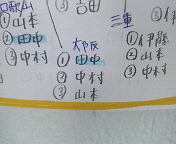 和歌山
①山本
②田中
③中村
③吉田
大阪
①田中
②中村
③山本
三重
①伊藤
②山本
③中村